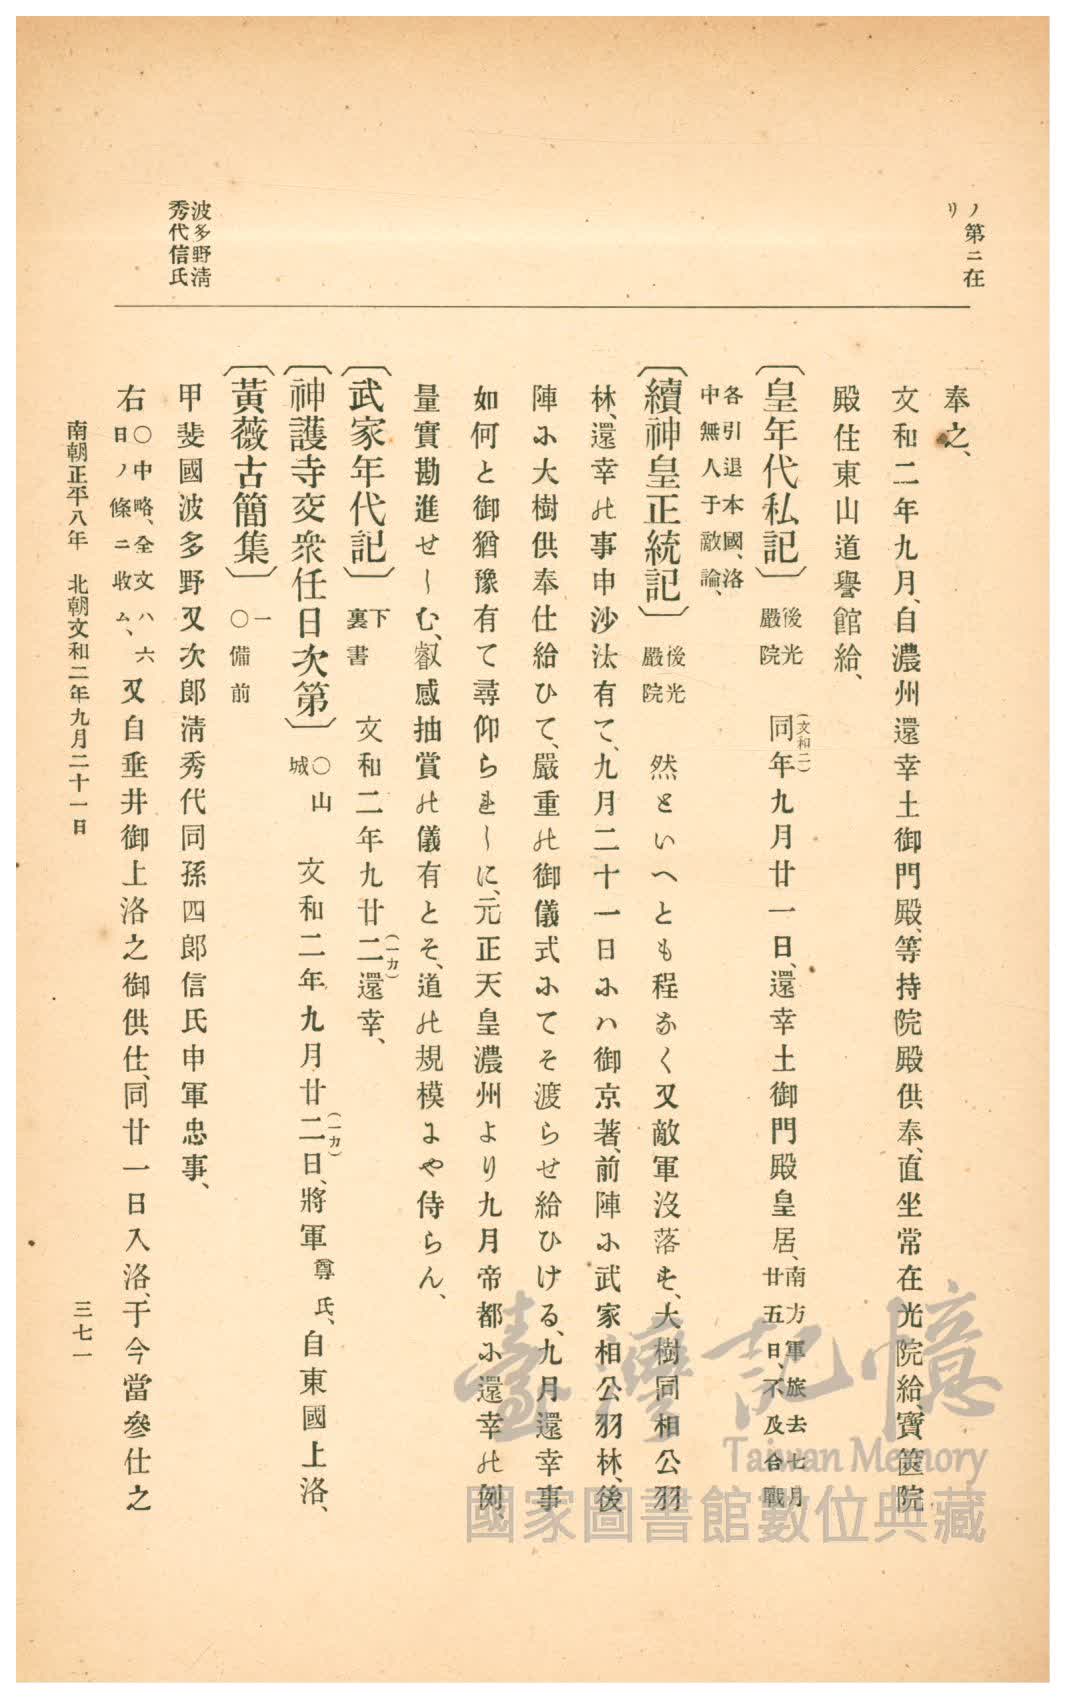 ノ第ニ在
リ
波多野清
秀代信氏
奉之、
文和二年九月、自濃州還幸土御門殿、等持院殿供奉、直坐常在光院給、寶篋院
殿住東山道譽館給、
〔皇年代私記〕後光嚴院 同(文和二)年九月廿一日、還幸土御門殿皇居、南方軍旅去七月廿五日、不及合戰
各引退本國、洛中無人于敵論、
〔續神皇正統記〕後光嚴院 然といへとも程なく又敵軍沒落せ、大樹同相公羽
林、還幸の事申沙汰有て、九月二十一日にハ御京著、前陣に武家相公羽林、後
陣に大樹供奉仕給ひて、嚴重の御儀式にてそ渡らせ給ひける、九月還幸事
如何と御猶豫有て尋仰られしに、元正天皇濃州より九月帝都に還幸の例、
量實勘進せしむ、叡感抽賞の儀有とそ、道の規模にや侍らん、
〔武家年代記〕下裏書 文和二年九廿二(一カ)還幸、
〔神護寺交衆任日次第〕○山城 文和二年九月廿二(一カ)日、將軍尊氏、自東國上洛、
〔黃薇古簡集〕一○備前
甲斐國波多野又次郎淸秀代同孫四郎信氏申軍忠事、
右○中略、全文ハ六日ノ條ニ收ム、又自垂井御上洛之御供仕、同廿一日入洛、于今當參仕之
南朝正平八年 北朝文和二年九月二十一日
三七一
臺灣記憶
Taiwan Memory
國家圖書館數位典藏